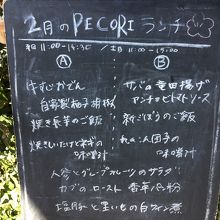 2月のPECORIランチ
平日 11:00-14:30 / 土日 11:00-15:00
Ⓐ
Ⓑ
牛すじおでん
自家製柚子胡椒
焼き春菊のご飯
焼きしいたけと岩のりの味噌汁
サバの竜田揚げ
アンチョビトマトソース
新ごぼうのご飯
れんこん団子の味噌汁
人参とグレープルーツのサラダ
カブのロースト 香草パン粉
塩豚と黒いもの白ワイン煮